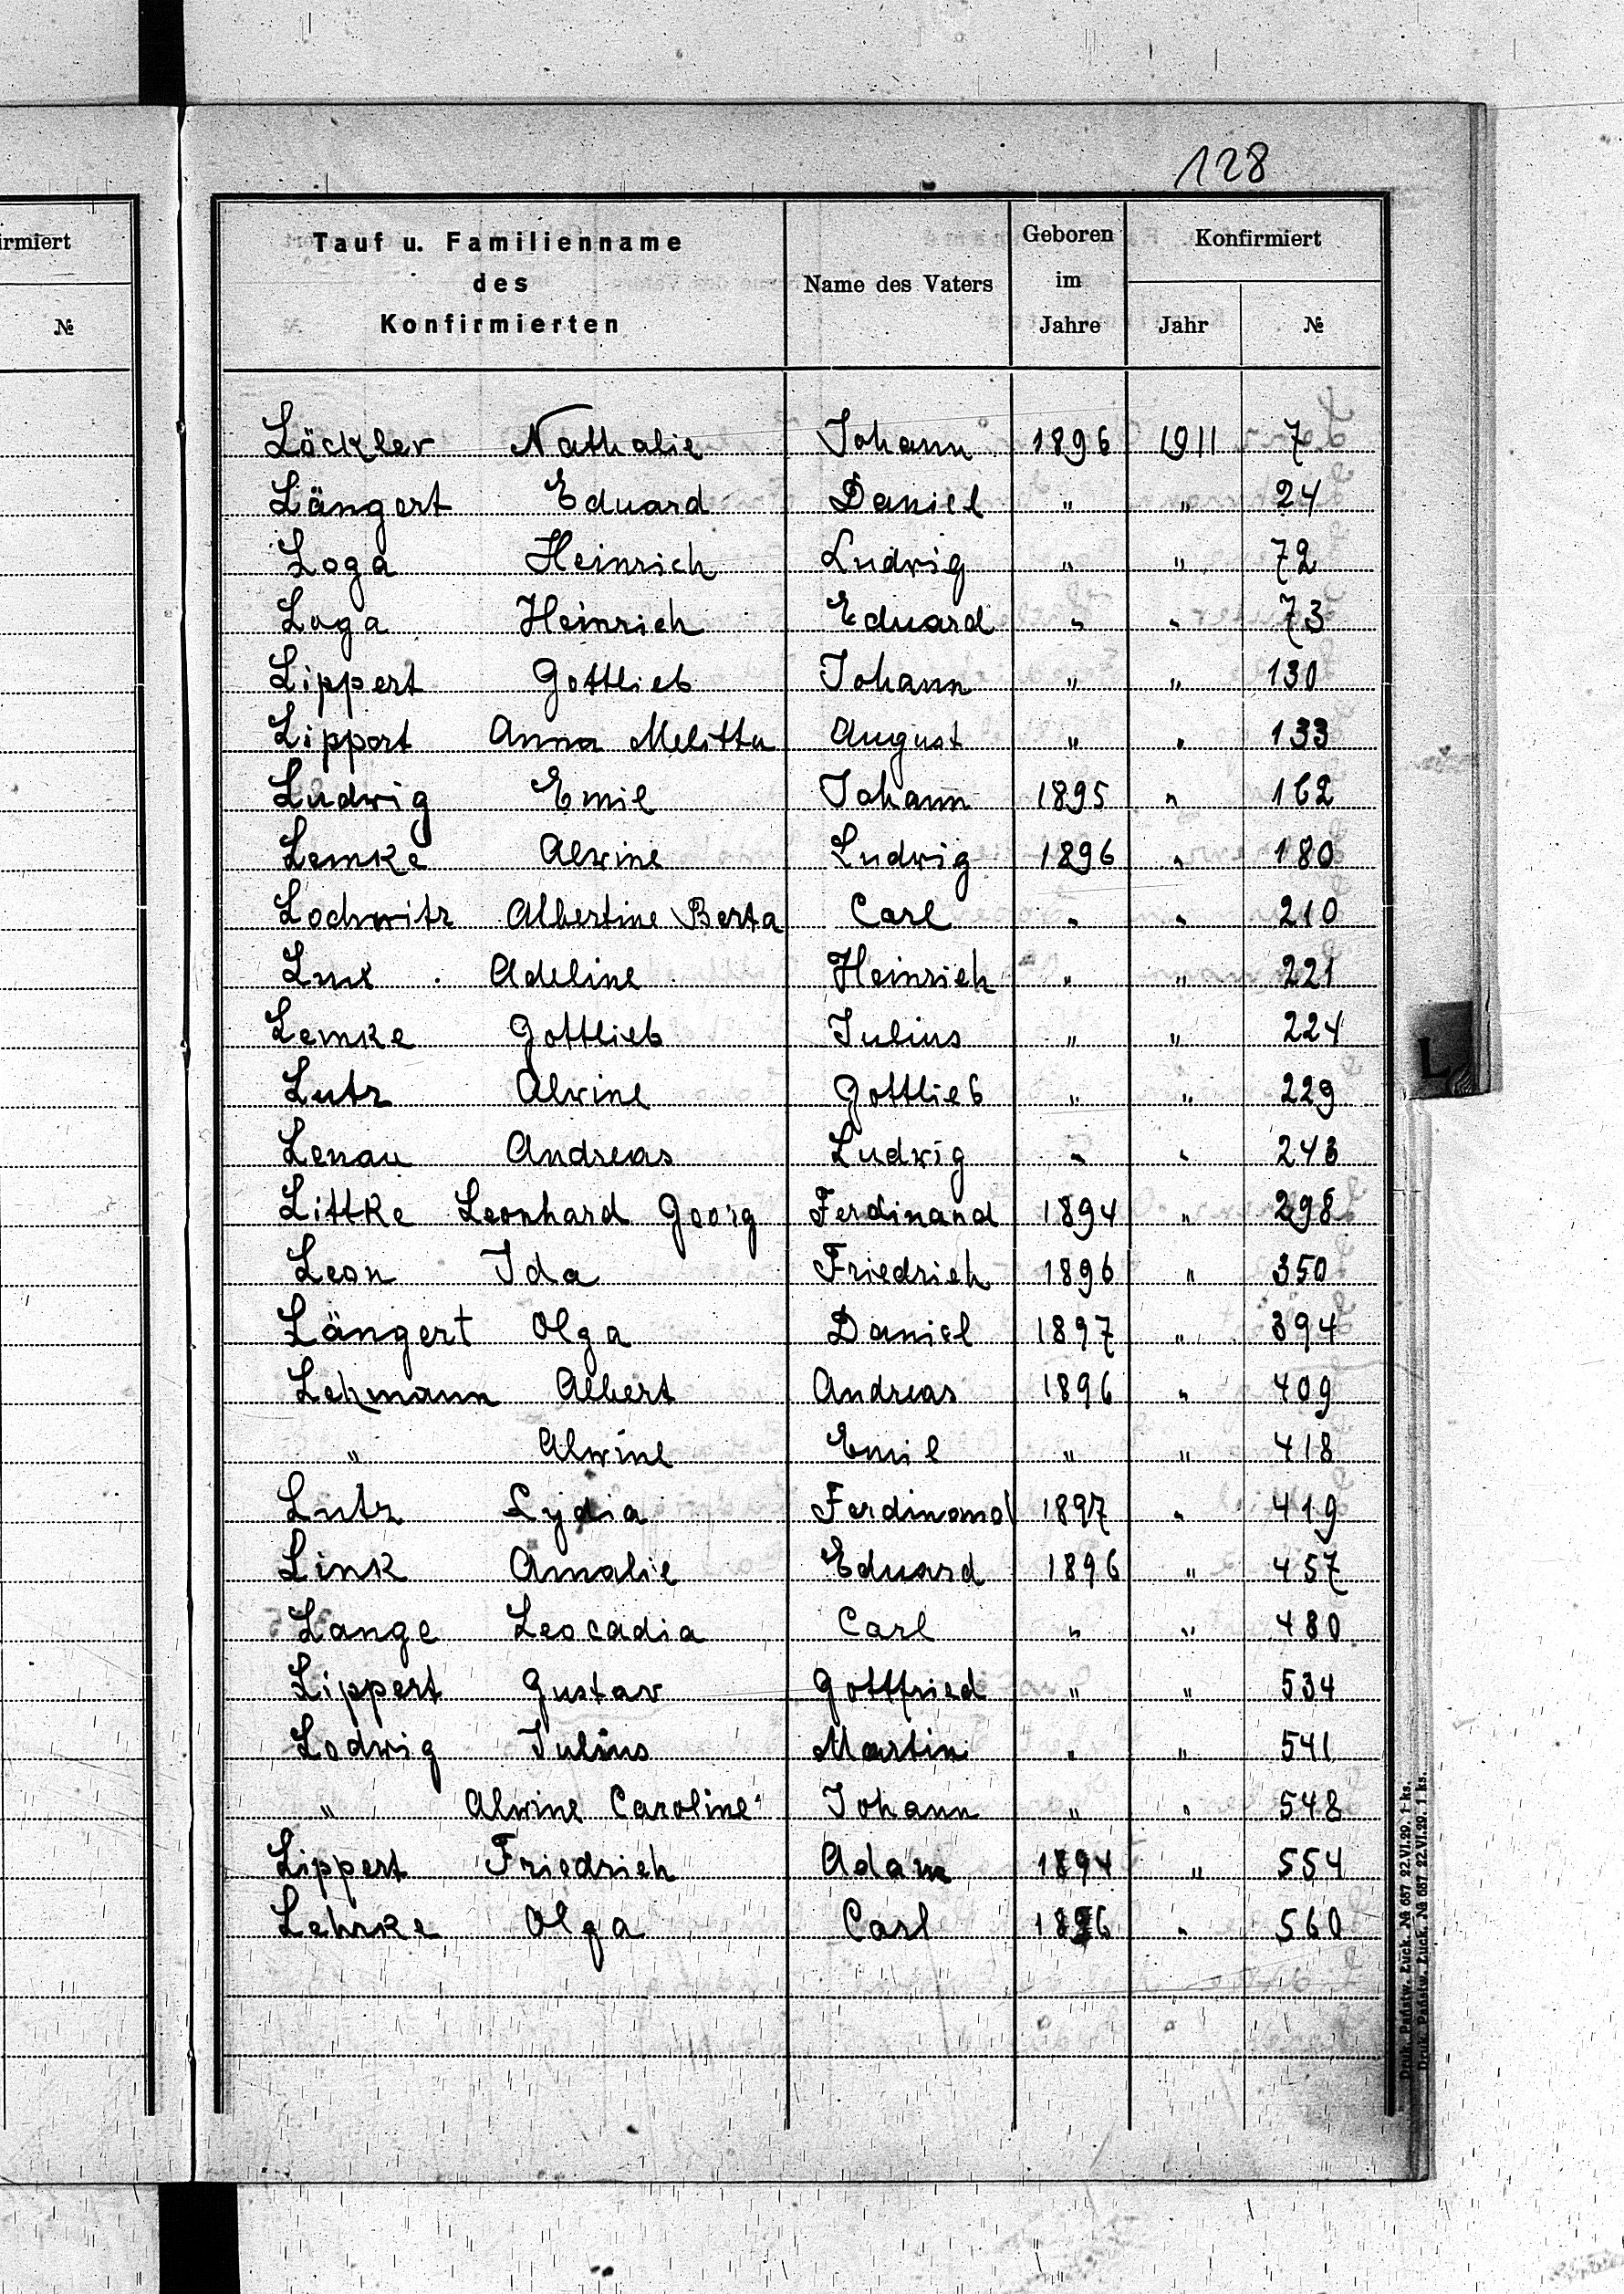 128
irmiert
№
Tauf u. Familienname
des
Konfirmierten
Name des Vaters
Geboren
im
Jahre
Konfirmiert
Jahr
№
Löckler Nathalie Johann 1896 1911 7
Längert Eduard Daniel " " 24
Loga Heinrich Ludwig " " 72
Loga Heinrich Eduard " " 73
Lippert Gottlieb Johann " " 130
Lippert Anna Melitta August " " 133
Ludwig Emil Johann 1895 " 162
Lemke Alwine Ludwig 1896 " 180
Lochwitz Albertine Berta Carl " " 210
Lux Adeline Heinrich " " 221
Lemke Gottlieb Julius " " 224
Lutz Alwine Gottlieb " " 229
Lenau Andreas Ludwig " " 243
Littke Leonhard Georg Ferdinand 1894 " 298
Leon Ida Friedrich 1896 " 350
Längert Olga Daniel 1897 " 394
Lehmann Albert Andreas 1896 " 409
" Alwine Emil " " 418
Lutz Lydia Ferdinand 1897 " 419
Link Amalie Eduard 1896 " 457
Lange Leocadia Carl " " 480
Lippert Gustav Gottfried " " 534
Ludwig Julius Martin " " 541
" Alwine Caroline Johann " " 548
Lippert Friedrich Adam 1894 " 554
Lehrke Olga Carl 1896 " 560
L
Druk. Państw. Łuck. № 687 22.VI.29. 1 ks.
Druk. Państw. Łuck. № 687 22.VI.29. 1 ks.